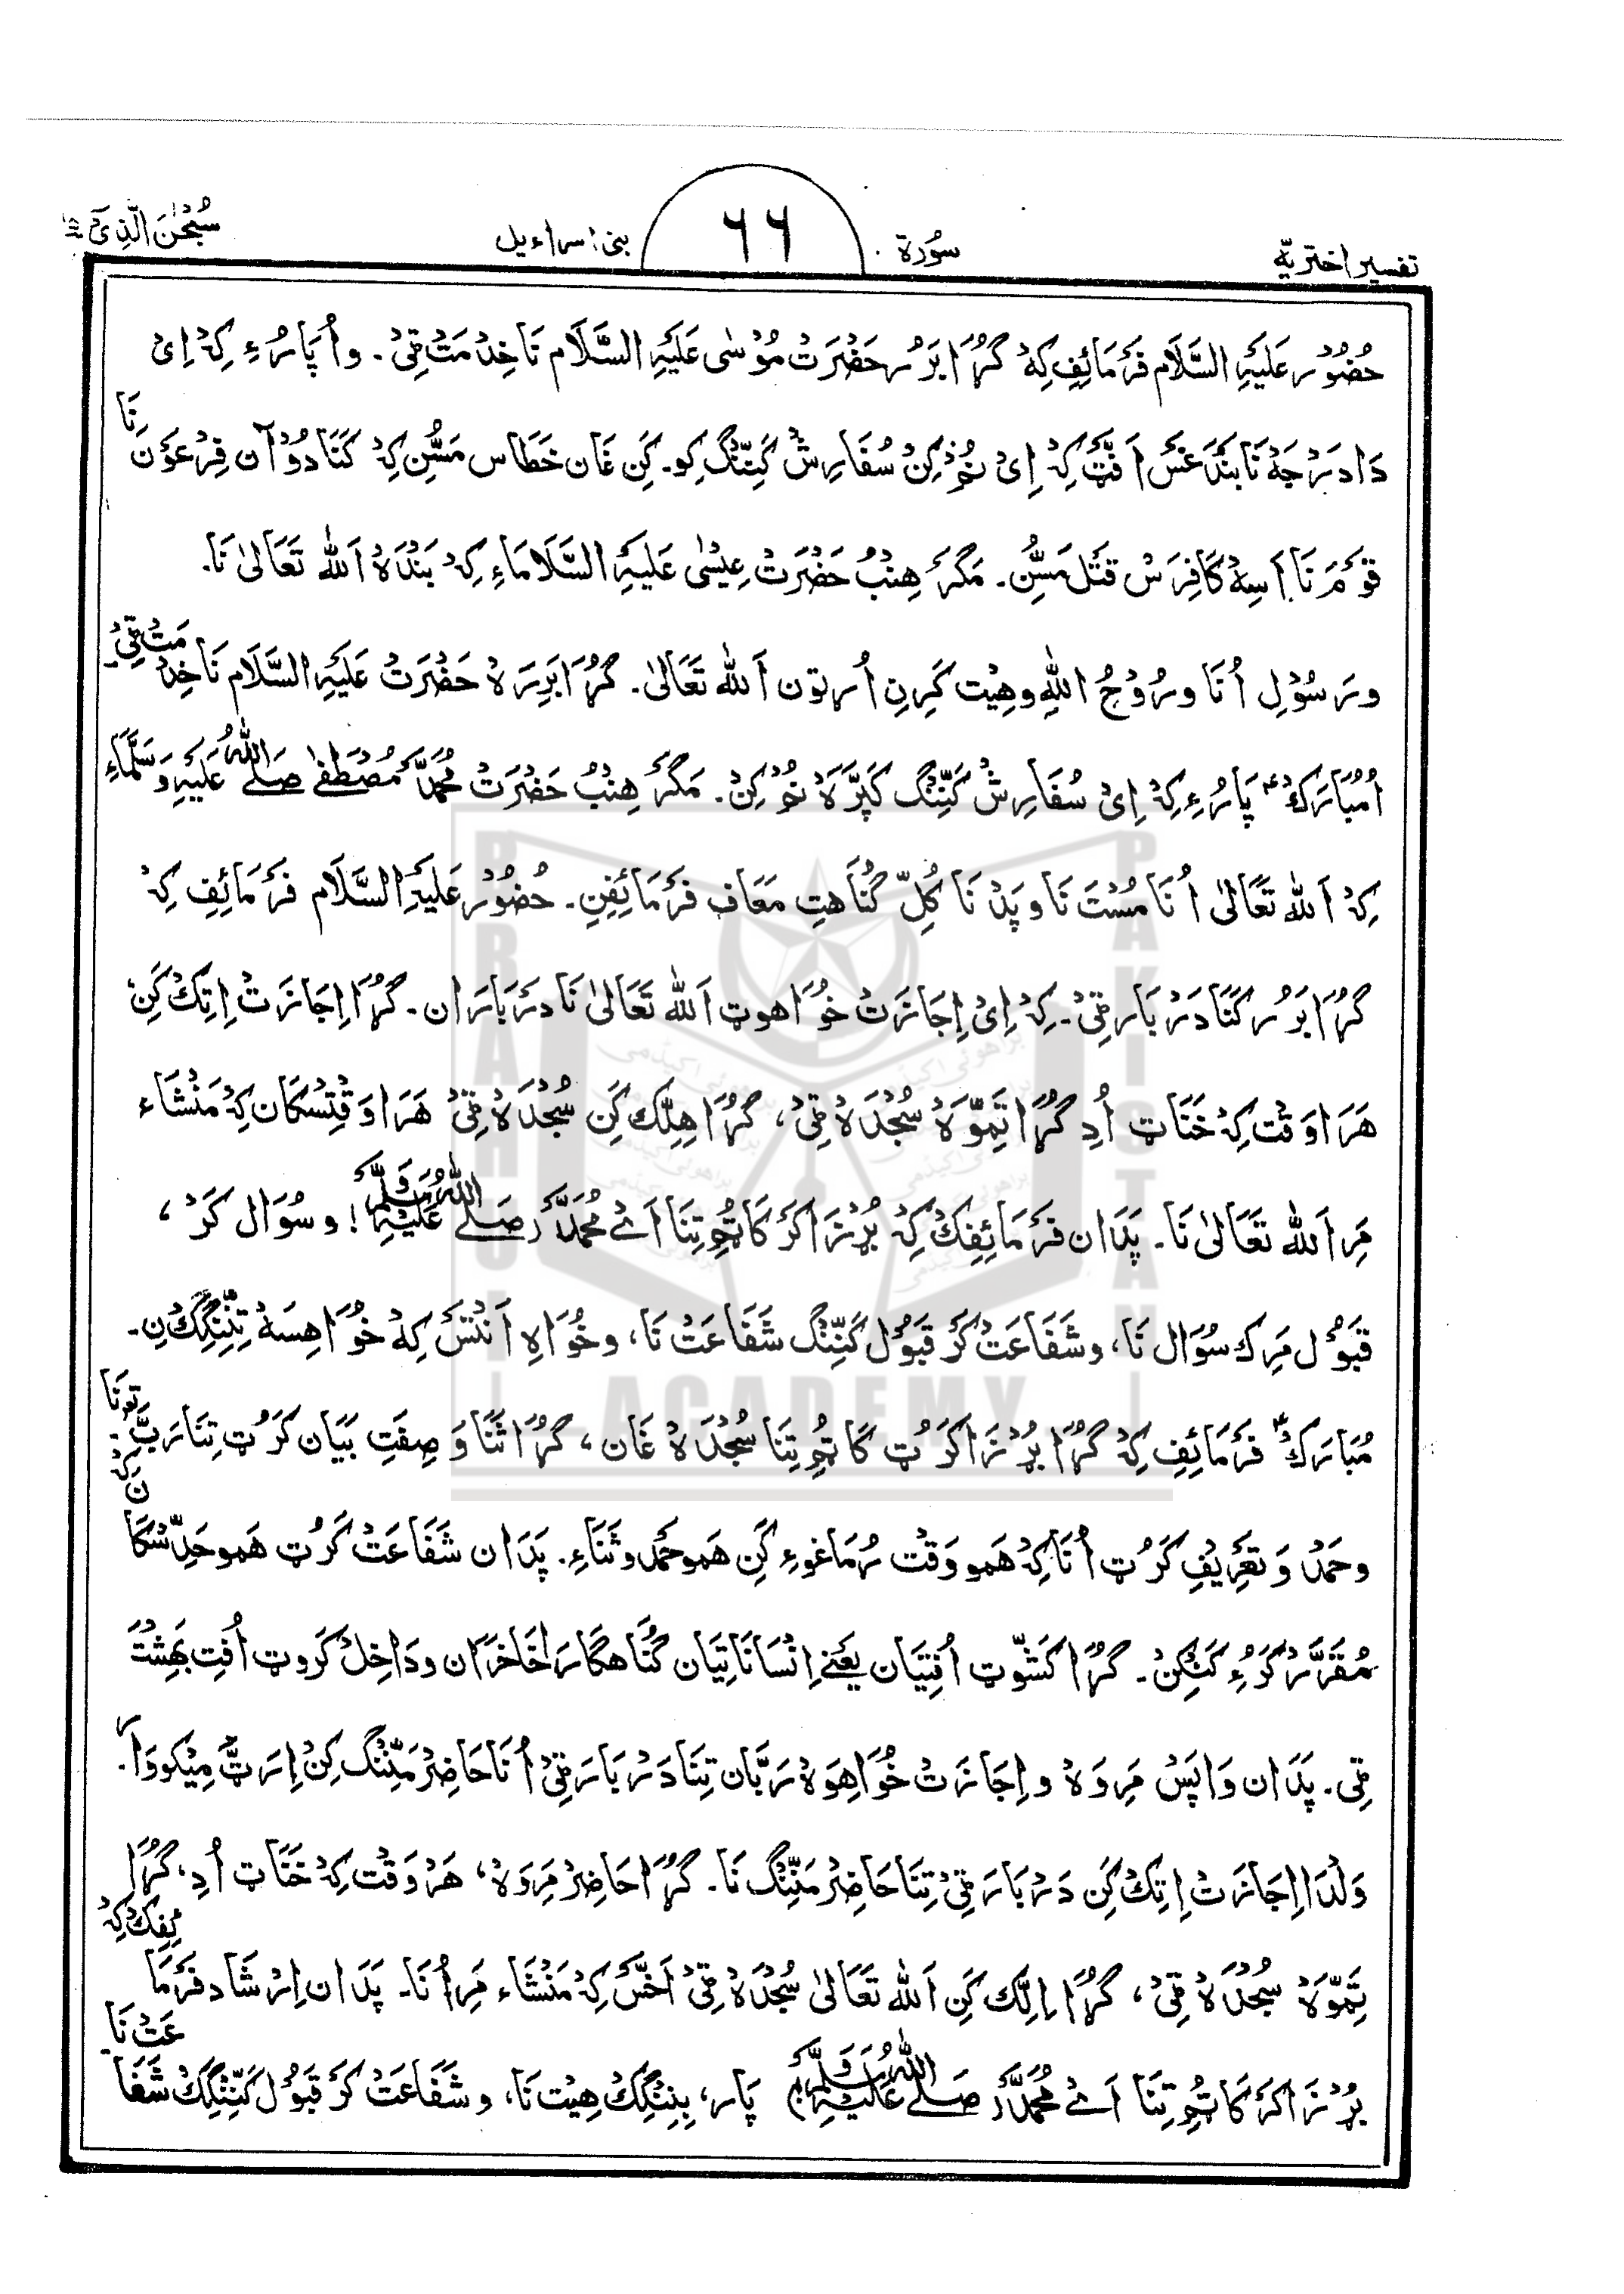 تفسیر اختریّه
سُوْرة
۶۶
بنی اسراءیل
سُبْحٰنَ الَّذِیْٓ ۱۵
حُضُوْر عَلَیْہِ السَّلَام فَرْمَائِفِ کِہْ گُڑَا بَرُر حَضْرَتْ مُوْسٰی عَلَیْہِ السَّلَام نَا خِدْمَتْ ٹِیْ۔ و اُ پَارُءِ کِہْ اِیْ
دَا دَرْجَہْ نَا بَنْدَغَسْ اَفَٹْ کِہْ اِیْ نُمْ کِنْ سُفَارِشْ کَنِّنْگ کِو۔ کَنْ غَان خَطَاس مَسُّنِ کِہْ کَنَا دُوْآن فِرْعَوْن نَا
قَوْم نَا اَسِہْ کَافِرَسْ قَتْل مَسُّنِ۔ مَگَر ھِنْبْ حَضْرَتْ عِیْسٰی عَلَیْہِ السَّلَامَاءِ کِہْ بَنْدَہْ اَللہ تَعَالٰی نَا۔
و رَسُوْلِ اُنَا و رُوْحُ اللہِ و ھِیْت کَرِنِ اُرتون اَللہ تَعَالٰی۔ گُڑَا بَرِرَہْ حَضْرَتْ عَلَیْہِ السَّلَام نَا خِدْمَتْ ٹِیْ۔
اُ مُبَارَکْ پَارُءِ کِہْ اِیْ سُفَارِشْ کَنِّنْگ کَپَّرَہْ نُمْ کِنْ۔ مَگَر ھِنْبْ حَضْرَتْ مُحَمَّد مُصْطَفٰی صَلَّی اللہُ عَلَیْہِ وَسَلَّمَاءِ
کِہْ اَللہ تَعَالٰی اُنَا مُسْتَ نَا و پَدَ نَا کُلّ گُنَاھتِ مَعَاف فَرْمَائِفِنِ۔ حُضُوْر عَلَیْہِ السَّلَام فَرْمَائِفِ کِہْ
گُڑَا بَرُر کَنَا دَرْبَار ٹِیْ۔ کِہْ اِیْ اِجَازَتْ خُوَاھوٹ اَللہ تَعَالٰی نَا دَرْبَارَان۔ گُڑَا اِجَازَتْ اِتِکْ کَنِ
ھَرَا وَقْت کِہْ خَنَاٹ اُدِ گُڑَا تَمّوَہْ سُجْدَہْ ٹِیْ، گُڑَا ھِلِّک کَنِ سُجْدَہْ ٹِیْ ھَرَا وَقْتِسْکَان کِہْ مَنْشَاء
مَرِ اَللہ تَعَالٰی نَا۔ پَدَان فَرْمَائِفِکْ کِہْ بُرْزَا کَرْ کَاٹُمِ تِنَا اَےْ مُحَمَّد (صَلَّی اللہُ عَلَیْہِ وَسَلَّم)! و سُوَال کَرْ،
قَبُوْل مَرِک سُوَال نَا، و شَفَاعَتْ کَرْ قَبُوْل کَنِّنْگ شَفَاعَتْ نَا، و خُوَاہِ اَنْتَسْ کِہْ خُوَاھِسَہْ تِنِّنْگِکْ نِ۔
مُبَارَکْ فَرْمَائِفِ کِہْ گُڑَا بُرْزَا کَرُٹ کَاٹُمِ تِنَا سُجْدَہْ غَان، گُڑَا ثَنَا وَ صِفَتِ بَیَان کَرُٹ تِنَا رَبّ
و حَمْد وَ تَعْرِیْفِ کَرُٹ اُنَا کِہْ ھَمو وَقْت رُمَاغوءِ کَنِ ھَمو حَمْد و ثَنَاءِ۔ پَدَان شَفَاعَتْ کَرُٹ ھَمو حَدِّسْکَا
مُقَرَّرْ کَرُءِ کَنْکِنْ۔ گُڑَا کَشّوٹ اُفْتِیَان یَعْنِے اِنْسَانَاتِیَان گُنَاھگَارَا خَاخَرَان و دَاخِلْ کَروٹ اُفْتِ بَھِشْتْ
ٹِی۔ پَدَان وَاپَسْ مَرِوَہْ و اِجَازَتْ خُوَاھِوَہْ رَبَّان تِنَا دَرْبَار ٹِیْ اُنَا حَاضِرْ مَنِّنْگ کِنْ اِرَٹّ مِیْکووَار۔
وَلْدَا اِجَازَتْ اِتِکْ کَنِ دَرْبَار ٹِیْ تِنَا حَاضِرْ مَنِّنْگ نَا۔ گُڑَا حَاضِرْ مَرِوَہْ، ھَرْ وَقْت کِہْ خَنَاٹ اُدِ، گُڑَا
تَمّوَہْ سُجْدَہْ ٹِیْ، گُڑَا اِلِّک کَنِ اَللہ تَعَالٰی سُجْدَہْ ٹِیْ اَخَسْ کِہْ مَنْشَاء مَرِ اُنَا۔ پَدَان اِرْشَاد فَرْمَائِفِکْ کِہْ
بُرْزَا کَرْ کَاٹُمِ تِنَا اَےْ مُحَمَّد (صَلَّی اللہُ عَلَیْہِ وَسَلَّم) پَار، بِنِنْگِکْ ھِیْت نَا، و شَفَاعَتْ کَرْ قَبُوْل کَنِّنْگِکْ شَفَاعَتْ نَا۔
BRAHUI
ACADEMY
PAKISTAN